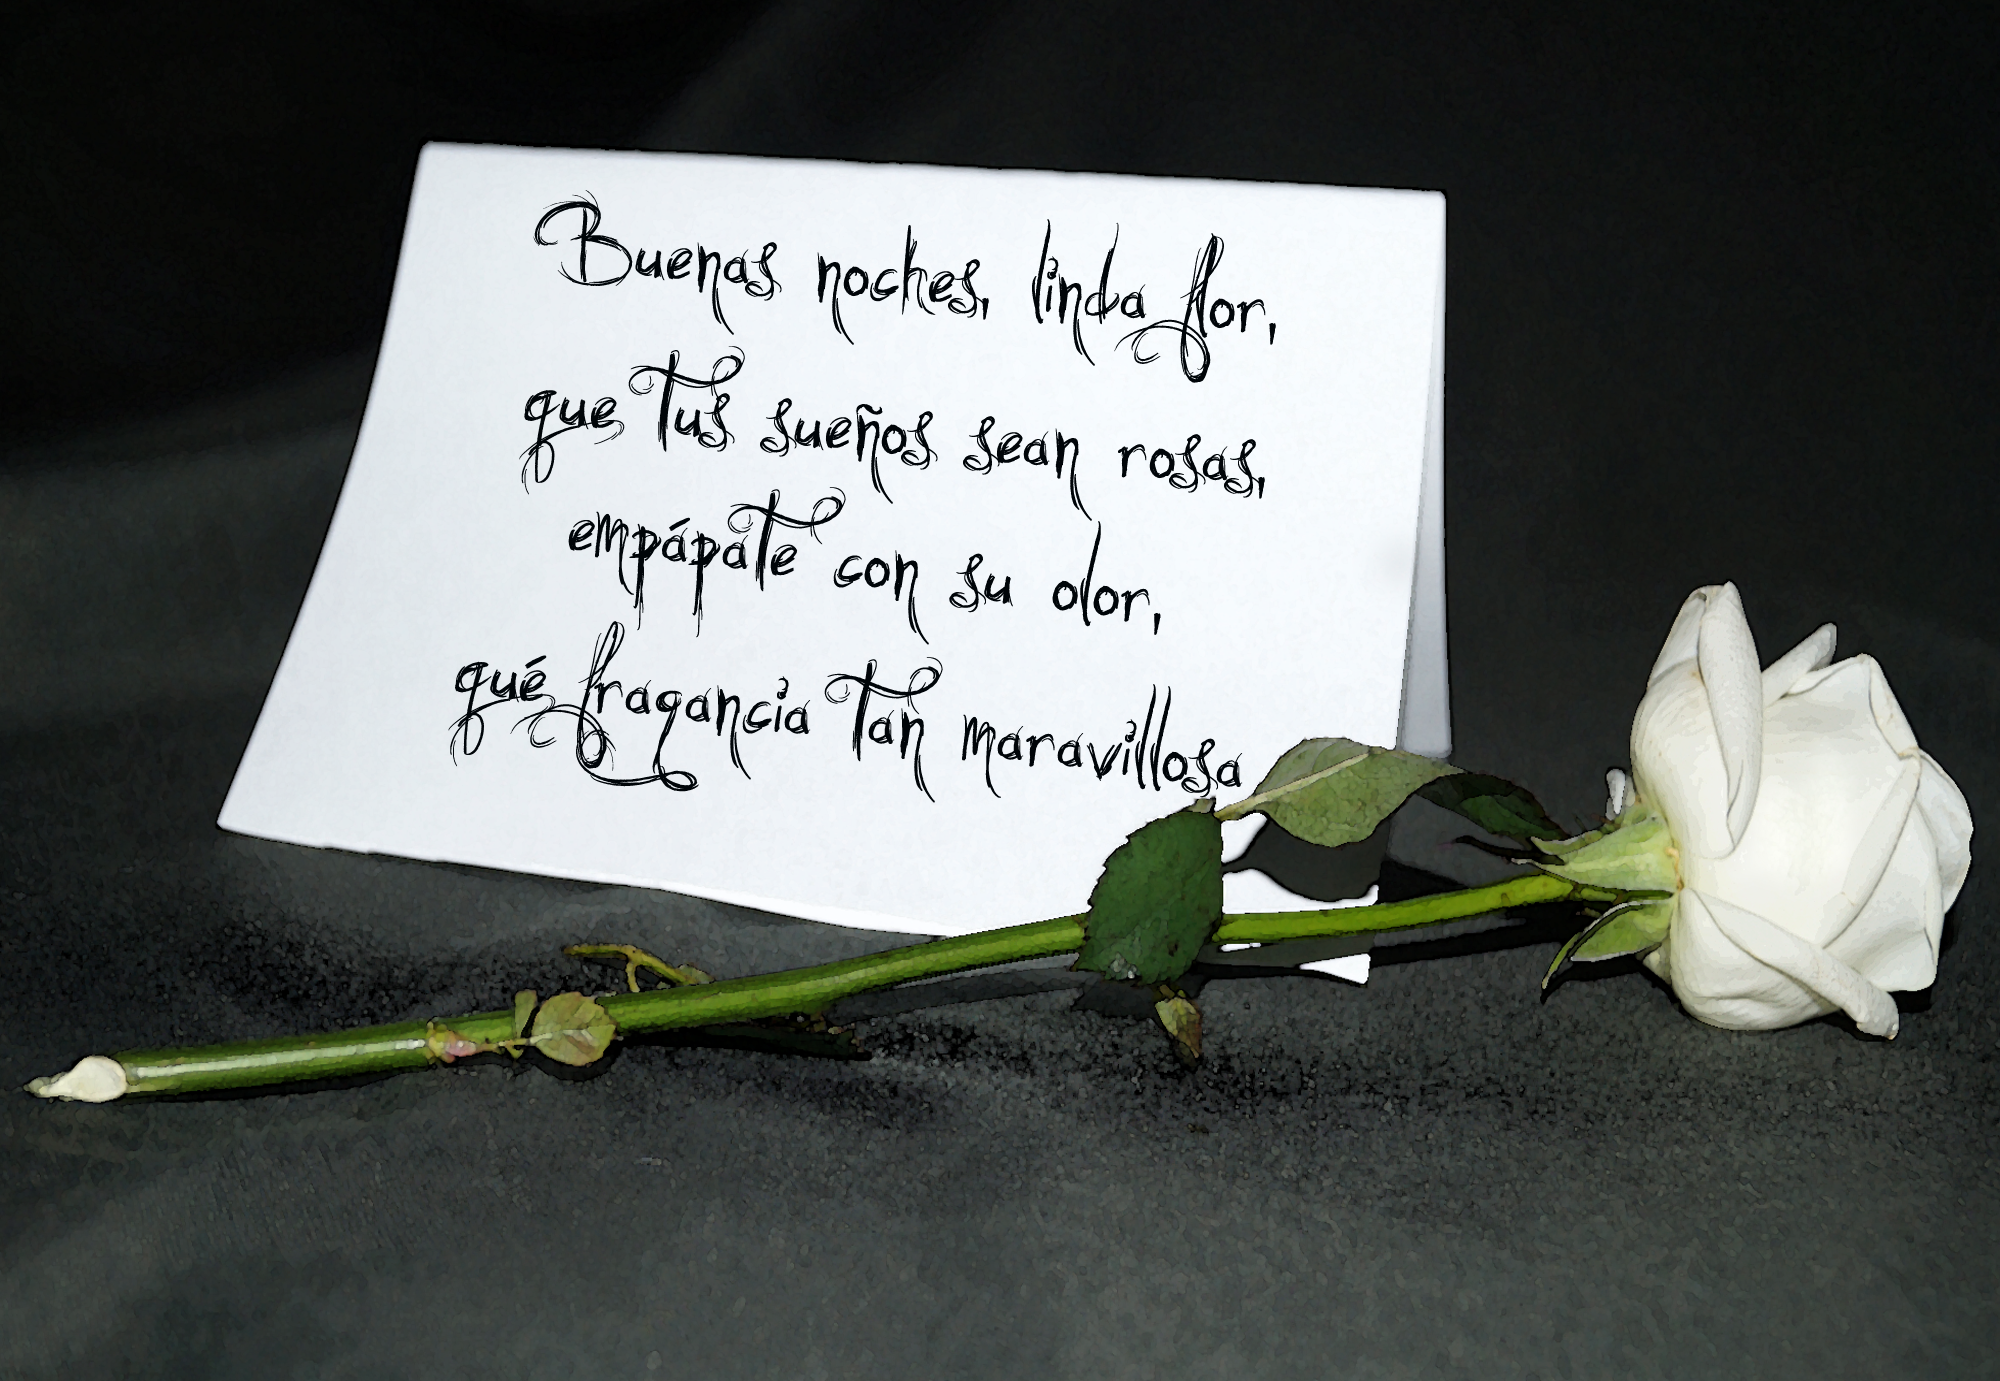 Buenas noches, linda flor,
que tus sueños sean rosas,
empápate con su olor,
qué fragancia tan maravillosa